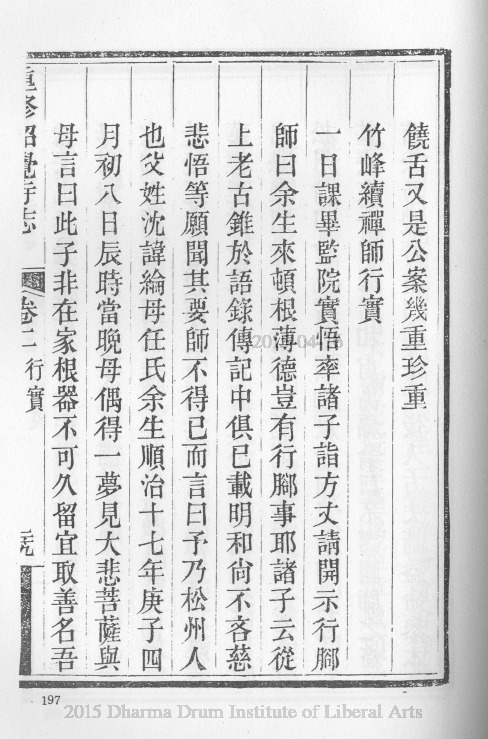 饒舌又是公案幾重珍重
竹峰續禪師行實
一日課畢監院實悟率諸子詣方丈請開示行腳
師曰余生來頓根薄德豈有行腳事耶諸子云從
上老古錐於語錄傳記中俱已載明和尙不吝慈
悲悟等願聞其要師不得已而言曰予乃松州人
也父姓沈諱綸母任氏余生順治十七年庚子四
月初八日辰時當晚母偶得一夢見大悲菩薩與
母言曰此子非在家根器不可久留宜取善名吾
重修昭覺寺志 卷二 行實
197
2015 Dharma Drum Institute of Liberal Arts